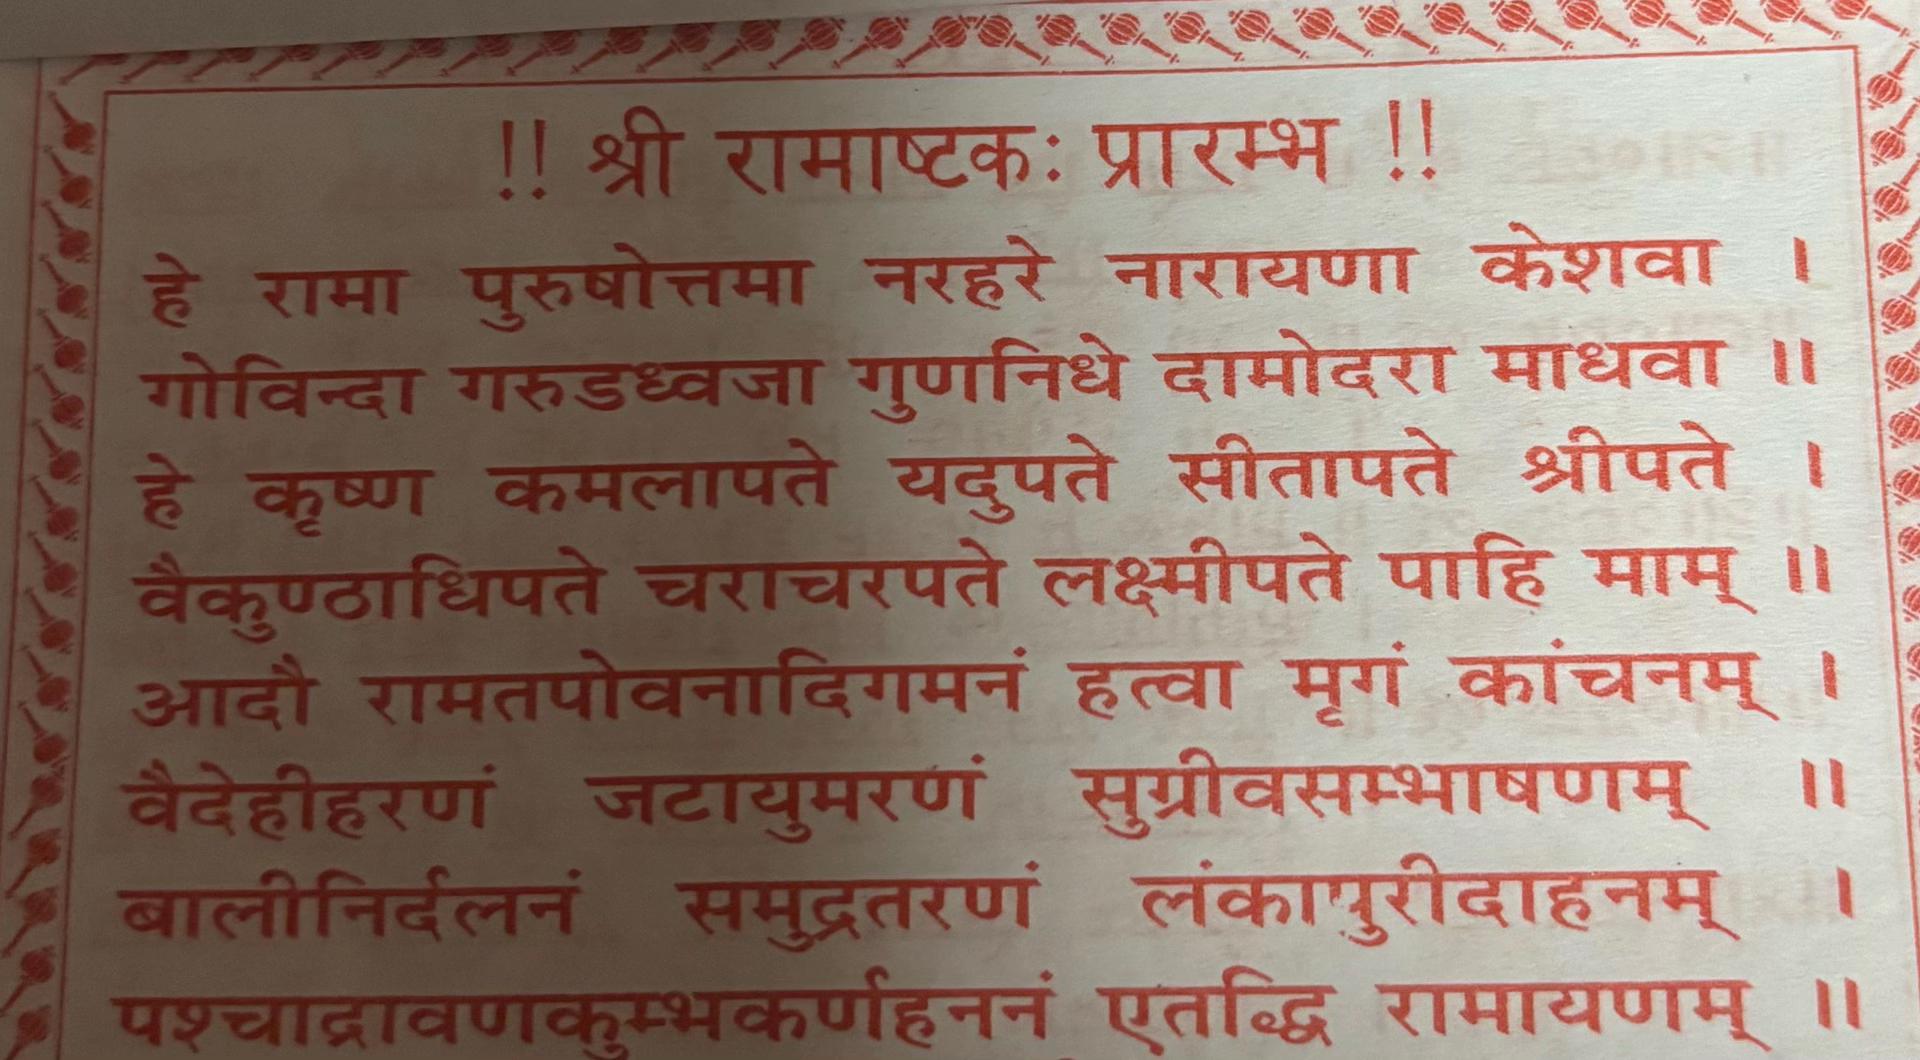 !! श्री रामाष्टकः प्रारम्भ !!
हे रामा पुरुषोत्तमा नरहरे नारायणा केशवा ।
गोविन्दा गरुडध्वजा गुणनिधे दामोदरा माधवा ॥
हे कृष्ण कमलापते यदुपते सीतापते श्रीपते ।
वैकुण्ठाधिपते चराचरपते लक्ष्मीपते पाहि माम् ॥
आदौ रामतपोवनादिगमनं हत्वा मृगं कांचनम् ।
वैदेहीहरणं जटायुमरणं सुग्रीवसम्भाषणम् ॥
बालीनिर्दलनं समुद्रतरणं लंकापुरीदाहनम् ।
पश्चाद्रावणकुम्भकर्णहननं एतद्धि रामायणम् ॥